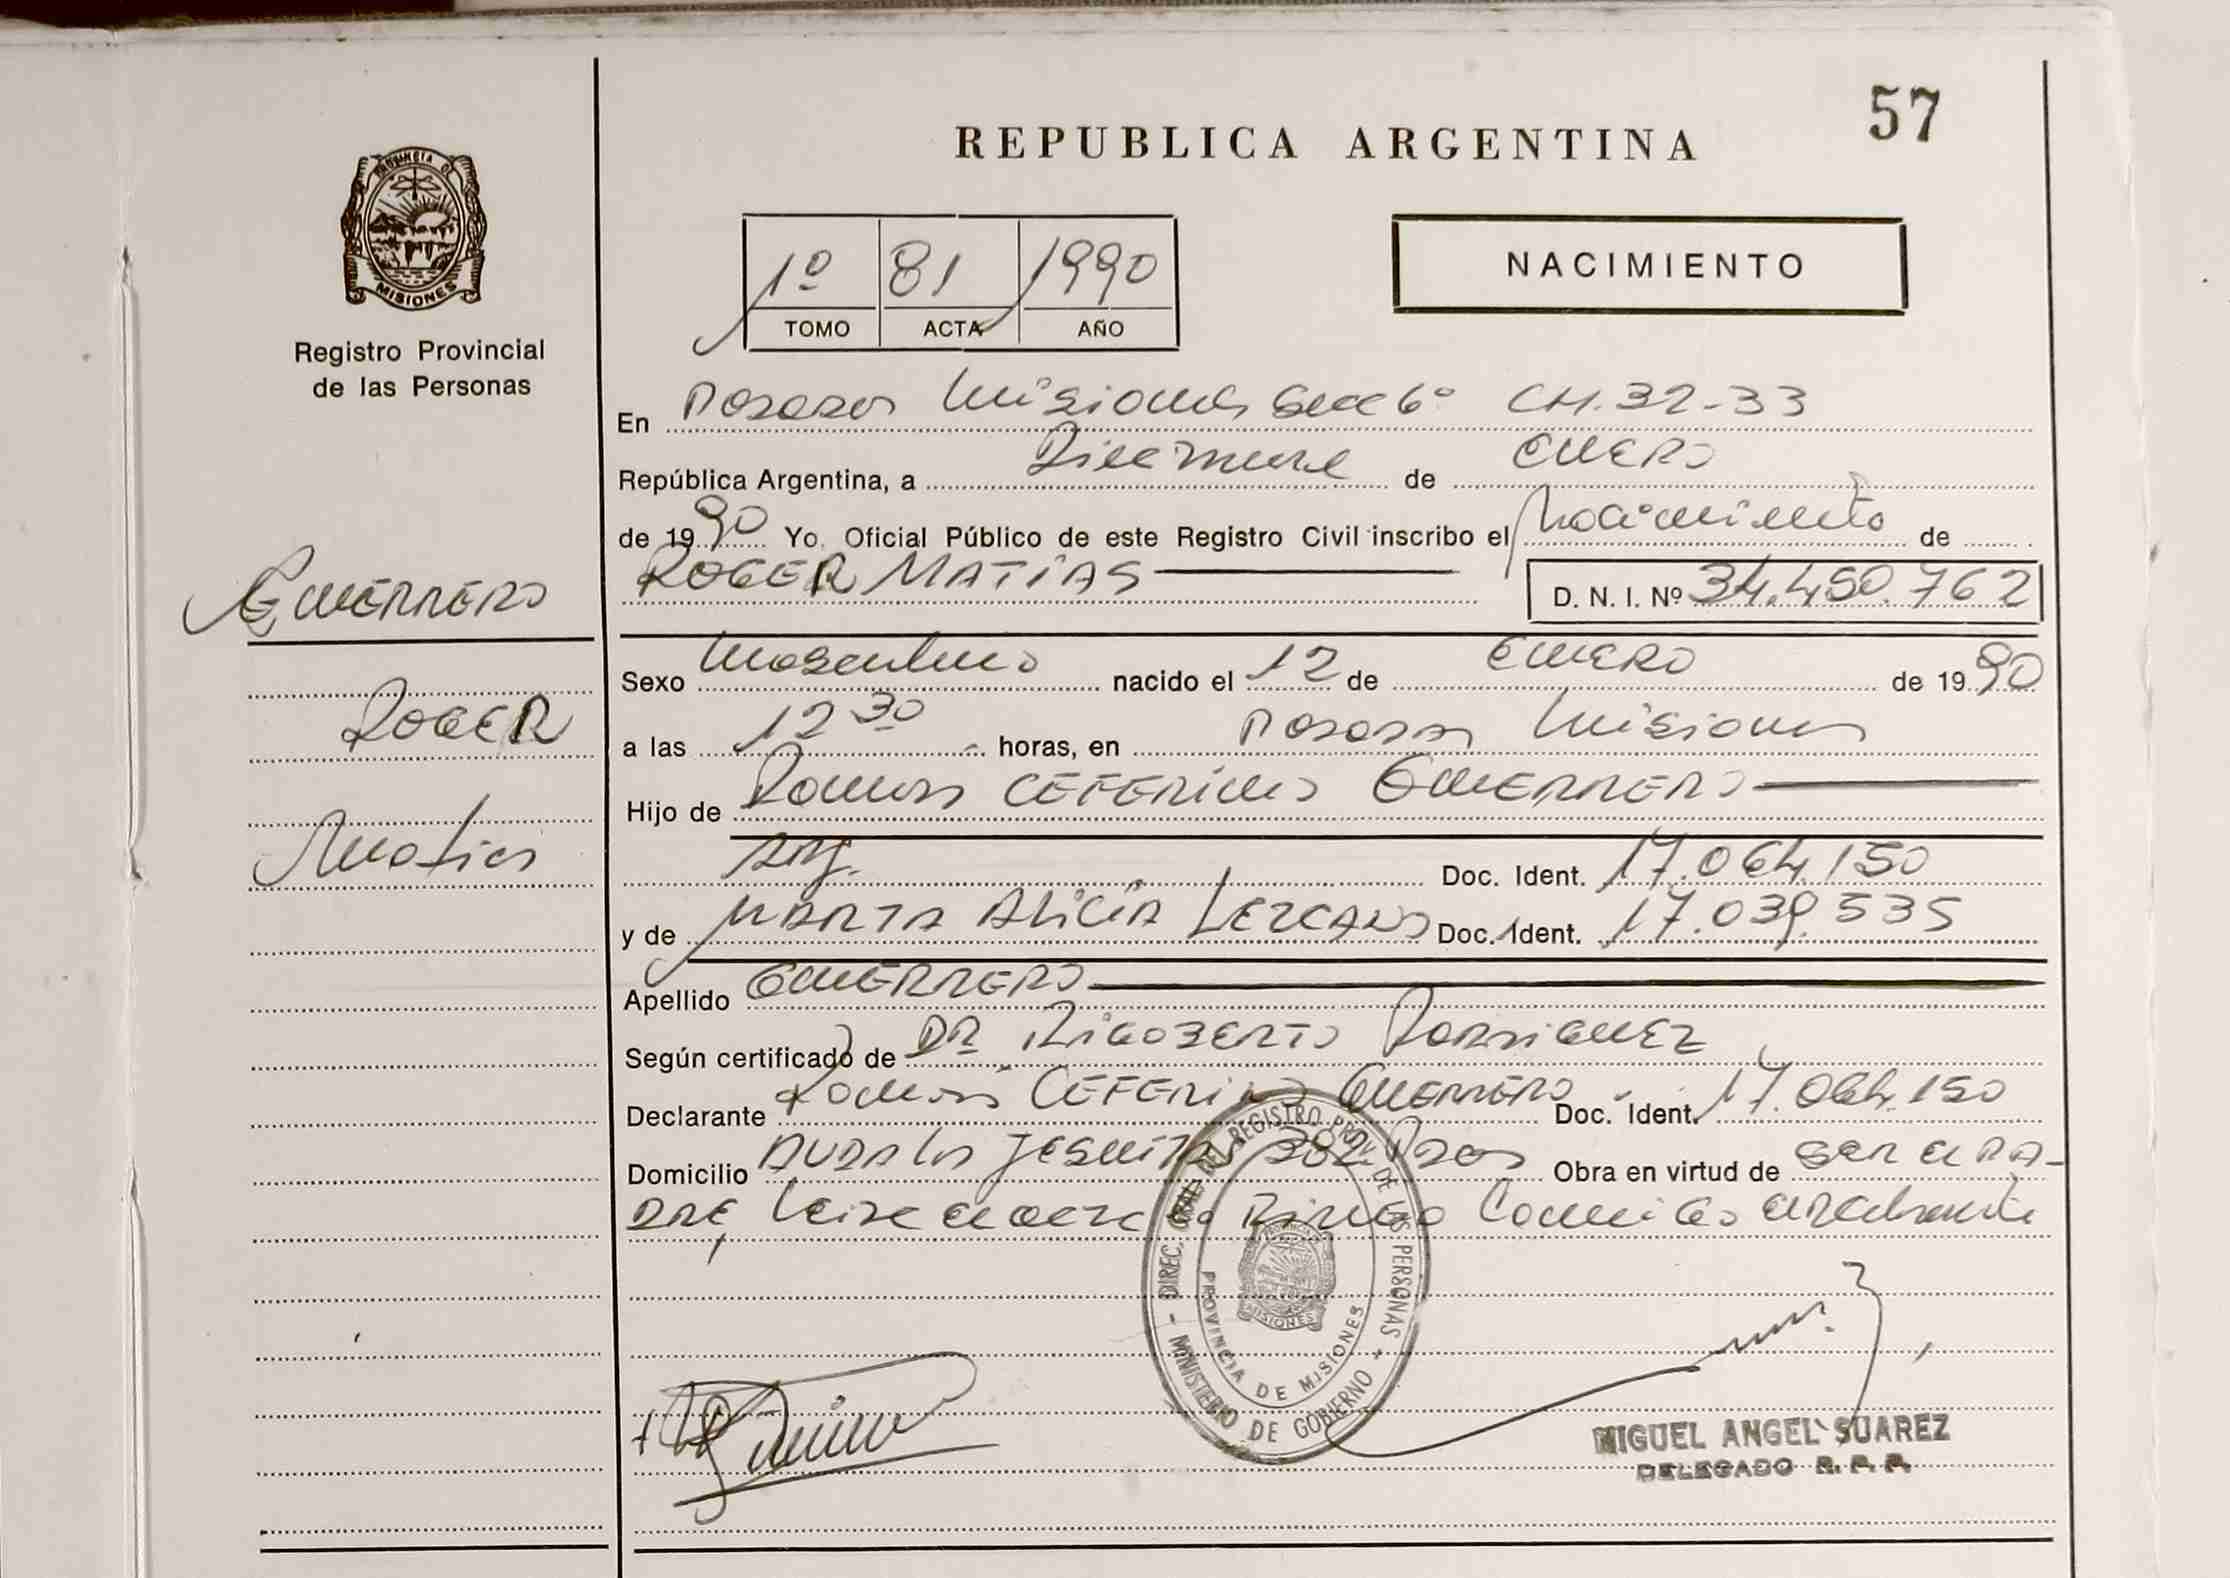 57
REPUBLICA ARGENTINA
PROVINCIA DE
MISIONES
Registro Provincial
de las Personas
1º 81 1990
TOMO ACTA AÑO
NACIMIENTO
En Posadas Misiones Secc 6º CH. 32-33
República Argentina, a Diecinueve de ENERO
de 1990 Yo Oficial Público de este Registro Civil inscribo el Nacimiento de
ROGER MATIAS D. N. I. Nº 34.450.762
GUERRERO
ROGER
Matias
Sexo Masculino nacido el 12 de ENERO de 1990
a las 12 30 horas, en Posadas Misiones
Hijo de Ramon CEFERINO GUERRERO
Arg. Doc. Ident. 17.064.150
y de MARTA ALICIA LEZCANO Doc. Ident. 17.039.535
Apellido GUERRERO
Según certificado de DR RIGOBERTO RODRIGUEZ
Declarante Ramon CEFERINO GUERRERO Doc. Ident. 17.064.150
Domicilio AVDA Los JESUITAS 382 Pdas Obra en virtud de SER EL PA-
DRE, Leida el acta la firma Conmigo el declarante
DIREC. GRAL. DEL REGISTRO PROV. DE LAS PERSONAS
- MINISTERIO DE GOBIERNO -
PROVINCIA DE MISIONES
MISIONES
MIGUEL ANGEL SUAREZ
DELEGADO R. P. P.